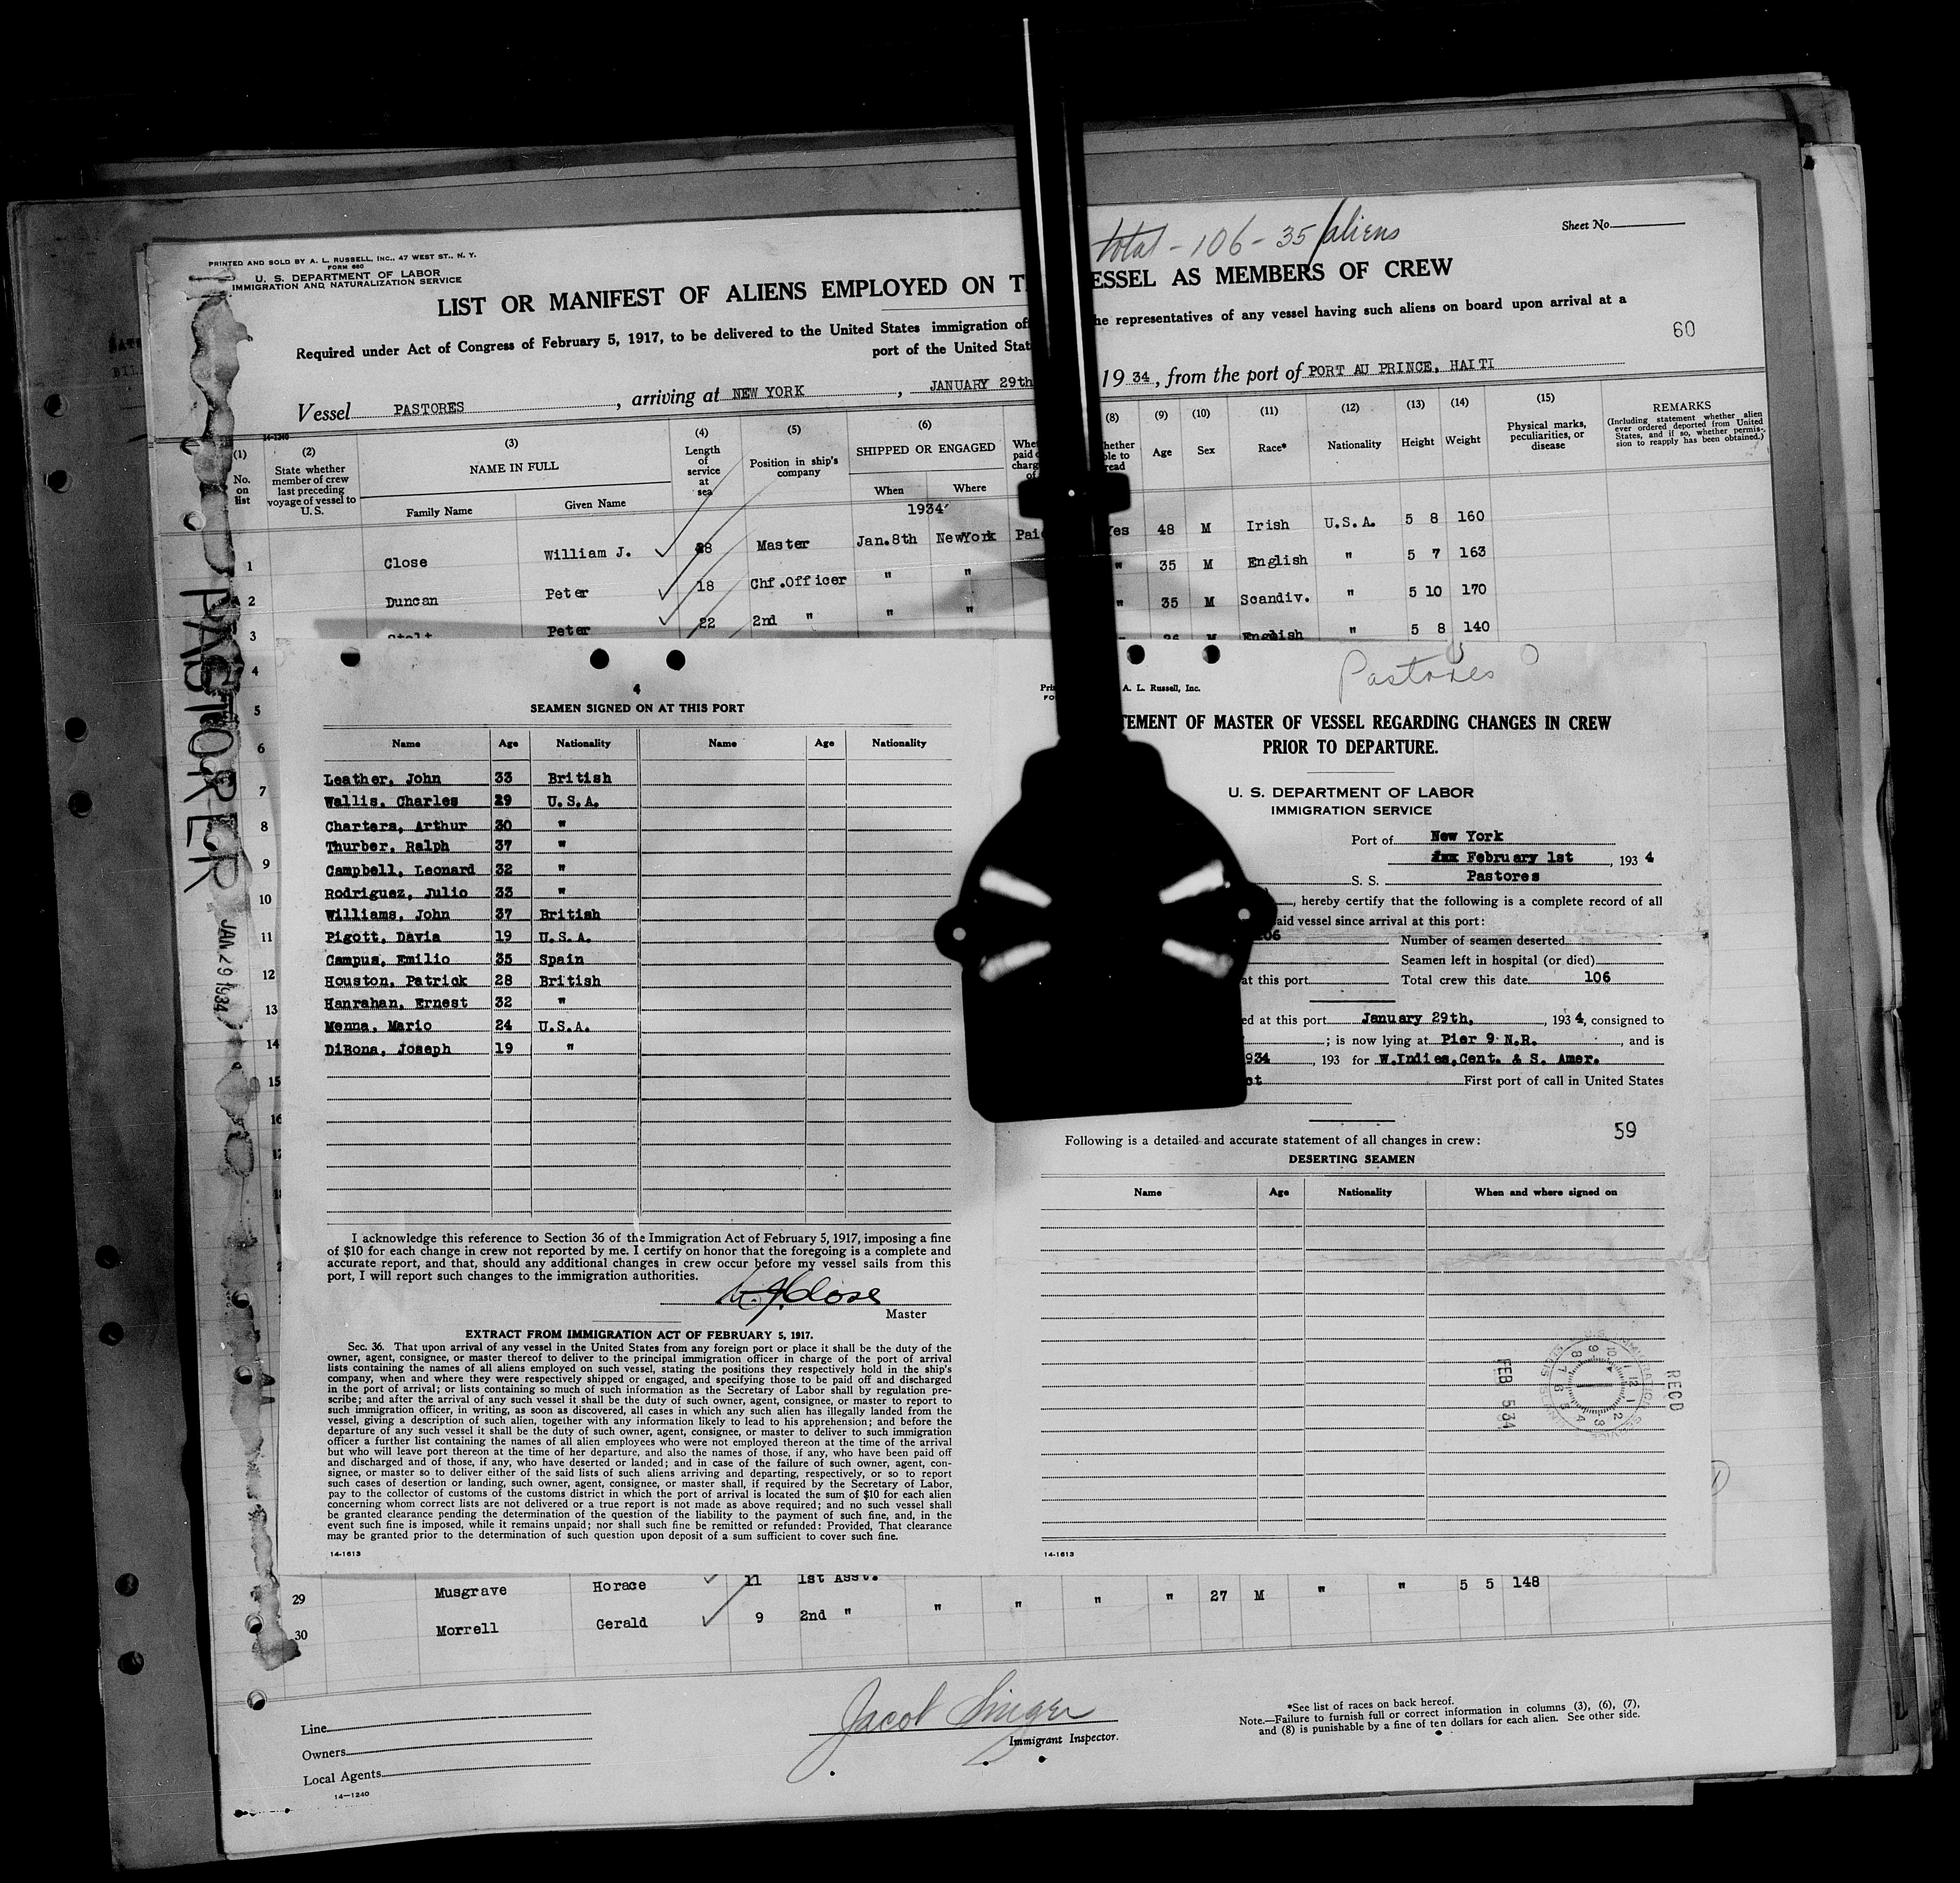 total - 106 - 35 aliens
Sheet No.
PRINTED AND SOLD BY A. L. RUSSELL, INC., 47 WEST ST., N. Y.
FORM 680
U. S. DEPARTMENT OF LABOR
IMMIGRATION AND NATURALIZATION SERVICE
LIST OR MANIFEST OF ALIENS EMPLOYED ON T ESSEL AS MEMBERS OF CREW
Required under Act of Congress of February 5, 1917, to be delivered to the United States immigration of he representatives of any vessel having such aliens on board upon arrival at a
port of the United Stat
60
Vessel PASTORES , arriving at NEW YORK , JANUARY 29th 19 34 , from the port of PORT AU PRINCE, HAITI
14-1240
(1) No. on list
(2) State whether member of crew last preceding voyage of vessel to U. S.
(3) NAME IN FULL
Family Name Given Name
(4) Length of service at sea
(5) Position in ship's company
(6) SHIPPED OR ENGAGED
When Where
(8)
(9) Age
(10) Sex
(11) Race*
(12) Nationality
(13) Height
(14) Weight
(15) Physical marks, peculiarities, or disease
REMARKS
(Including statement whether alien ever ordered deported from United States, and if so, whether permission to reapply has been obtained.)
1934
1 Close William J. 28 Master Jan.8th NewYork Paid Yes 48 M Irish U.S.A. 5 8 160
2 Duncan Peter 18 Chf.Officer " " " 35 M English " 5 7 163
3 Stolt Peter 22 2nd " " " " 35 M Scandiv. " 5 10 170
26 M English " 5 8 140
4
5
6
7
8
9
10
11
12
13
14
15
16
PASTORER
JAN 29 1934
4
SEAMEN SIGNED ON AT THIS PORT
Name Age Nationality Name Age Nationality
Leather, John 33 British
Wallis, Charles 29 U.S.A.
Charters, Arthur 30 "
Thurber, Ralph 37 "
Campbell, Leonard 32 "
Rodriguez, Julio 33 "
Williams, John 37 British
Pigott, Davia 19 U.S.A.
Campus, Emilio 35 Spain
Houston, Patrick 28 British
Hanrahan, Ernest 32 "
Menna, Mario 24 U.S.A.
DiBona, Joseph 19 "
I acknowledge this reference to Section 36 of the Immigration Act of February 5, 1917, imposing a fine
of $10 for each change in crew not reported by me. I certify on honor that the foregoing is a complete and
accurate report, and that, should any additional changes in crew occur before my vessel sails from this
port, I will report such changes to the immigration authorities.
W. J. Close
Master
EXTRACT FROM IMMIGRATION ACT OF FEBRUARY 5, 1917.
Sec. 36. That upon arrival of any vessel in the United States from any foreign port or place it shall be the duty of the
owner, agent, consignee, or master thereof to deliver to the principal immigration officer in charge of the port of arrival
lists containing the names of all aliens employed on such vessel, stating the positions they respectively hold in the ship's
company, when and where they were respectively shipped or engaged, and specifying those to be paid off and discharged
in the port of arrival; or lists containing so much of such information as the Secretary of Labor shall by regulation pre-
scribe; and after the arrival of any such vessel it shall be the duty of such owner, agent, consignee, or master to report to
such immigration officer, in writing, as soon as discovered, all cases in which any such alien has illegally landed from the
vessel, giving a description of such alien, together with any information likely to lead to his apprehension; and before the
departure of any such vessel it shall be the duty of such owner, agent, consignee, or master to deliver to such immigration
officer a further list containing the names of all alien employees who were not employed thereon at the time of the arrival
but who will leave port thereon at the time of her departure, and also the names of those, if any, who have been paid off
and discharged and of those, if any, who have deserted or landed; and in case of the failure of such owner, agent, con-
signee, or master so to deliver either of the said lists of such aliens arriving and departing, respectively, or so to report
such cases of desertion or landing, such owner, agent, consignee, or master shall, if required by the Secretary of Labor,
pay to the collector of customs of the customs district in which the port of arrival is located the sum of $10 for each alien
concerning whom correct lists are not delivered or a true report is not made as above required; and no such vessel shall
be granted clearance pending the determination of the question of the liability to the payment of such fine, and, in the
event such fine is imposed, while it remains unpaid; nor shall such fine be remitted or refunded: Provided, That clearance
may be granted prior to the determination of such question upon deposit of a sum sufficient to cover such fine.
14-1613
Pastores
A. L. Russell, Inc.
TEMENT OF MASTER OF VESSEL REGARDING CHANGES IN CREW
PRIOR TO DEPARTURE.
U. S. DEPARTMENT OF LABOR
IMMIGRATION SERVICE
Port of New York
February 1st , 193 4
S. S. Pastores
, hereby certify that the following is a complete record of all
aid vessel since arrival at this port:
106 Number of seamen deserted
Seamen left in hospital (or died)
at this port Total crew this date 106
ed at this port January 29th, , 193 4, consigned to
; is now lying at Pier 9 N.R. , and is
934 , 193 for W.Indies,Cent. & S. Amer.
First port of call in United States
59
Following is a detailed and accurate statement of all changes in crew:
DESERTING SEAMEN
Name Age Nationality When and where signed on
RECD
FEB 5 34
14-1613
29 Musgrave Horace 11 1st Asst. " 27 M " " 5 5 148
30 Morrell Gerald 9 2nd " " " "
Line
Owners
Local Agents
14-1240
Jacob Singer
Immigrant Inspector.
*See list of races on back hereof.
Note.—Failure to furnish full or correct information in columns (3), (6), (7),
and (8) is punishable by a fine of ten dollars for each alien. See other side.